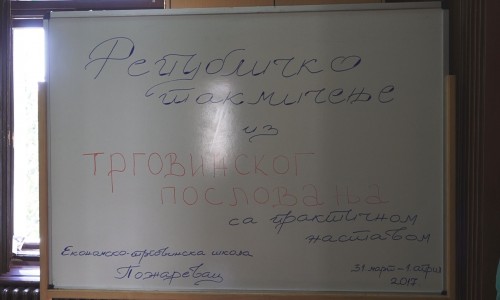 Републичко
такмичење
из
ТРГОВИНСКОГ
ПОСЛОВАЊА
са практичном
наставом
Економско-трговинска школа
Пожаревац
31 март - 1 април